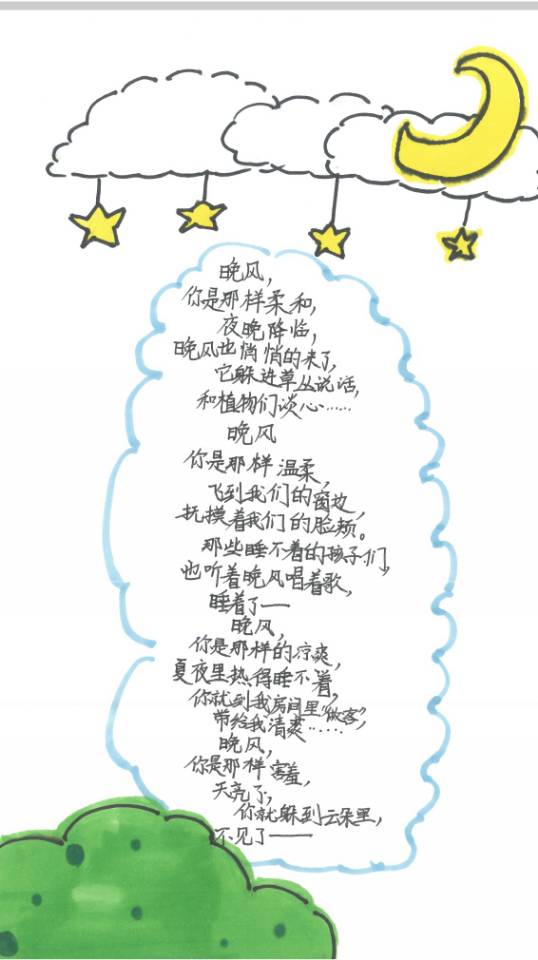 晚风，
你是那样柔和，
夜晚降临，
晚风也悄悄的来了，
它躲进草丛说话，
和植物们谈心……
晚风
你是那样温柔，
飞到我们的窗边，
抚摸着我们的脸颊。
那些睡不着的孩子们，
也听着晚风唱着歌，
睡着了——
晚风，
你是那样的凉爽，
夏夜里热得睡不着，
你就到我房间里“做客”，
带给我清爽……
晚风，
你是那样害羞，
天亮了，
你就躲到云朵里，
不见了——